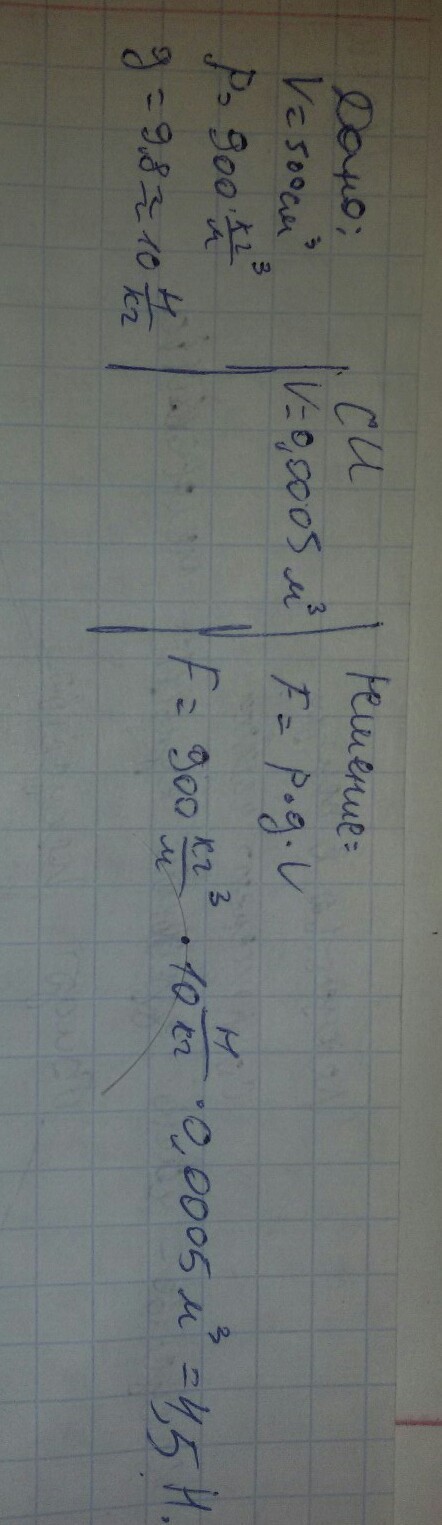 Дано:
V = 500 см³
ρ = 900 кг/м³
g = 9,8 ≈ 10 Н/кг
СИ
V = 0,0005 м³
Решение:
F = ρ · g · V
F = 900 кг/м³ · 10 Н/кг · 0,0005 м³ = 4,5 Н.